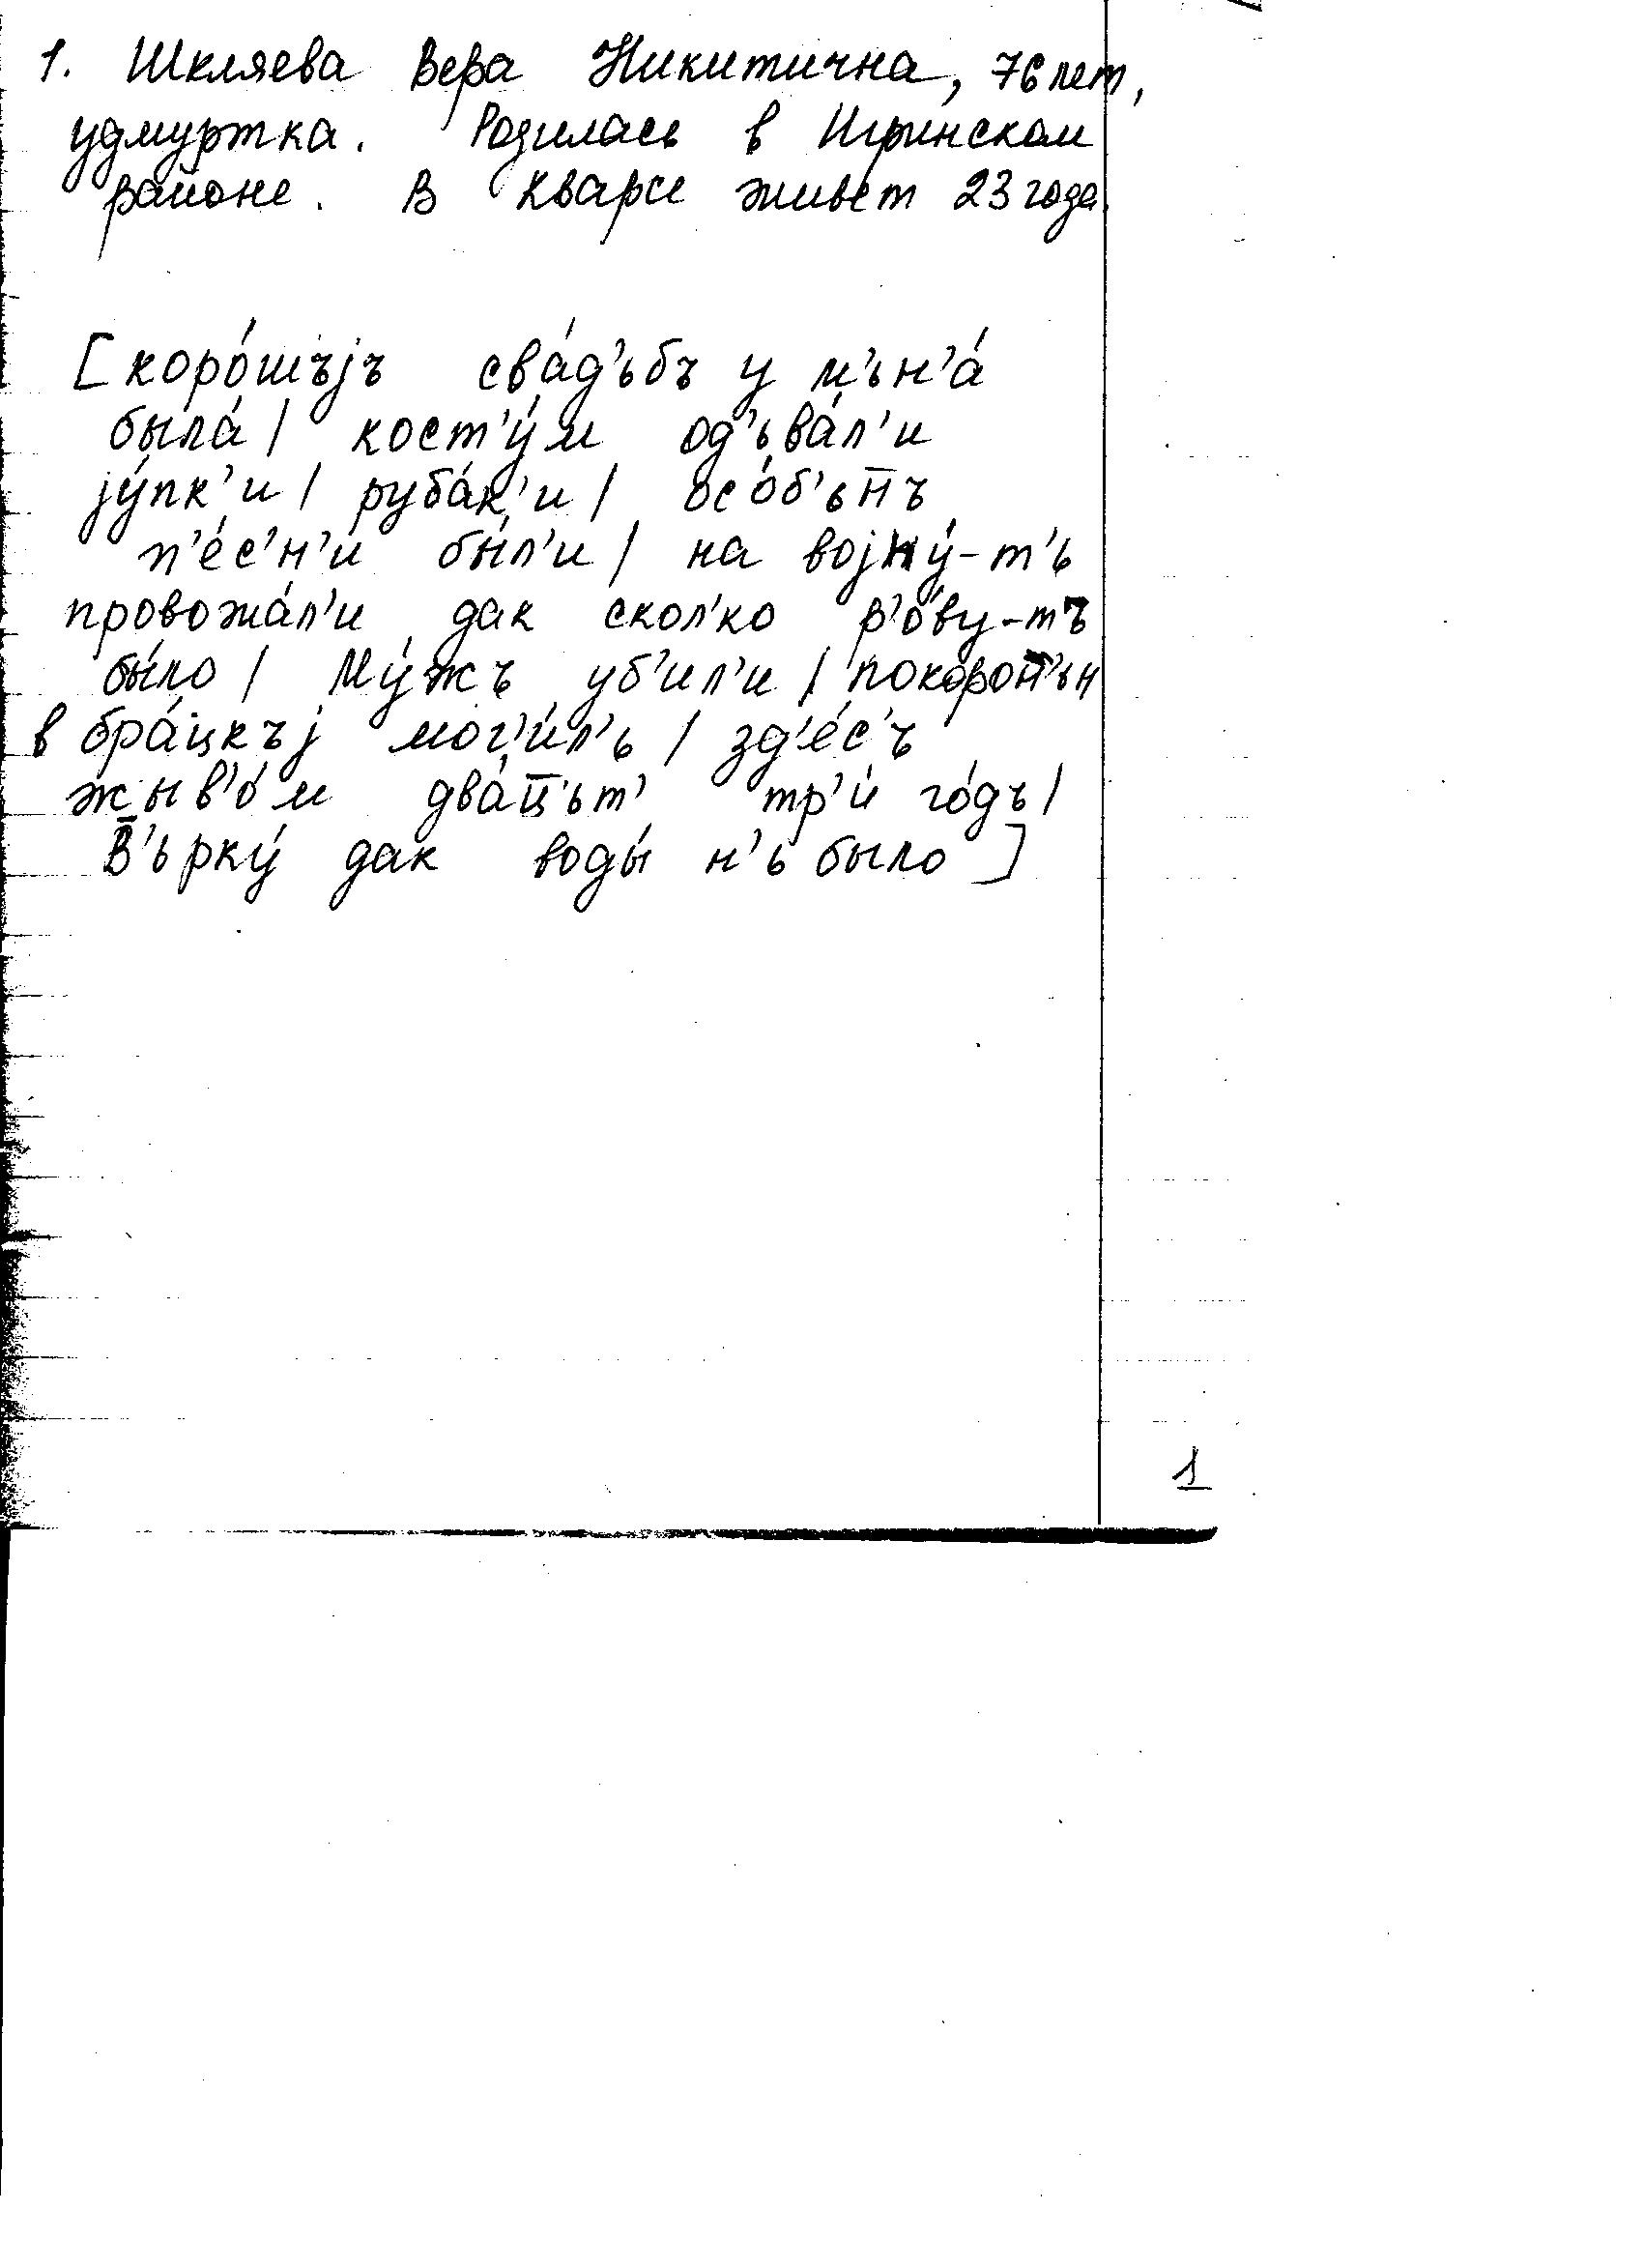 1. Шкляева Вера Никитична, 76 лет,
удмуртка. Родилась в Игринском
районе. В Кварсе живет 23 года.
[коро́шъjъ сва́д'ьбъ у м'ьн'а́
была́ | кост'у́м од'ьва́л'и
jу́пк'и | руба́к'и | осо́б'ьн̄ъ
п'е́с'н'и бы́л'и | на воjну́-т'ь
провожа́л'и дак скол'ко р'о́ву-тъ
бы́ло | Му́жъ уб'ил'и | покорон̄'ьн
в бра́цкъj мог'и́л'ь | зд'е́с'ъ
жыв'о́м два́ц̄ьт' тр'и́ го́дъ |
В̄'ьрку́ дак воды́ н'ь было]
1